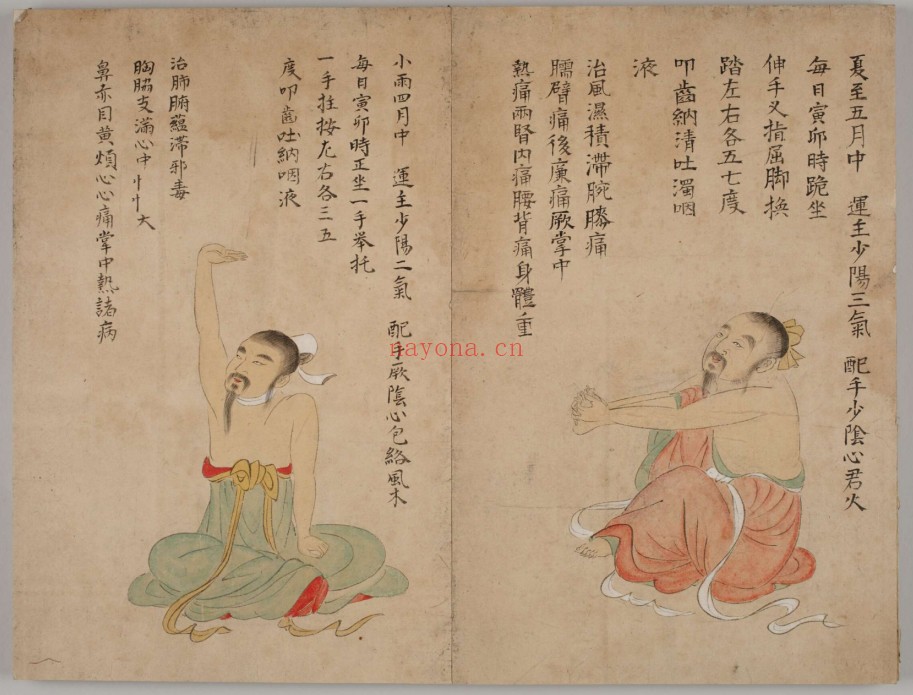 夏至五月中　運主少陽三氣　配手少陰心君火
每日寅卯時跪坐
伸手叉指屈脚換
踏左右各五七度
叩齒納清吐濁咽
液
治風濕積滯腕膝痛
臑臂痛後廉痛厥掌中
熱痛兩腎內痛腰背痛身體重
小雨四月中　運主少陽二氣　配手厥陰心包絡風木
每日寅卯時正坐一手舉托
一手拄按左右各三五
度叩齒吐納咽液
治肺腑蘊滯邪毒
胸脇支滿心中忄忄大
鼻赤目黃煩心心痛掌中熱諸病
nayona.cn